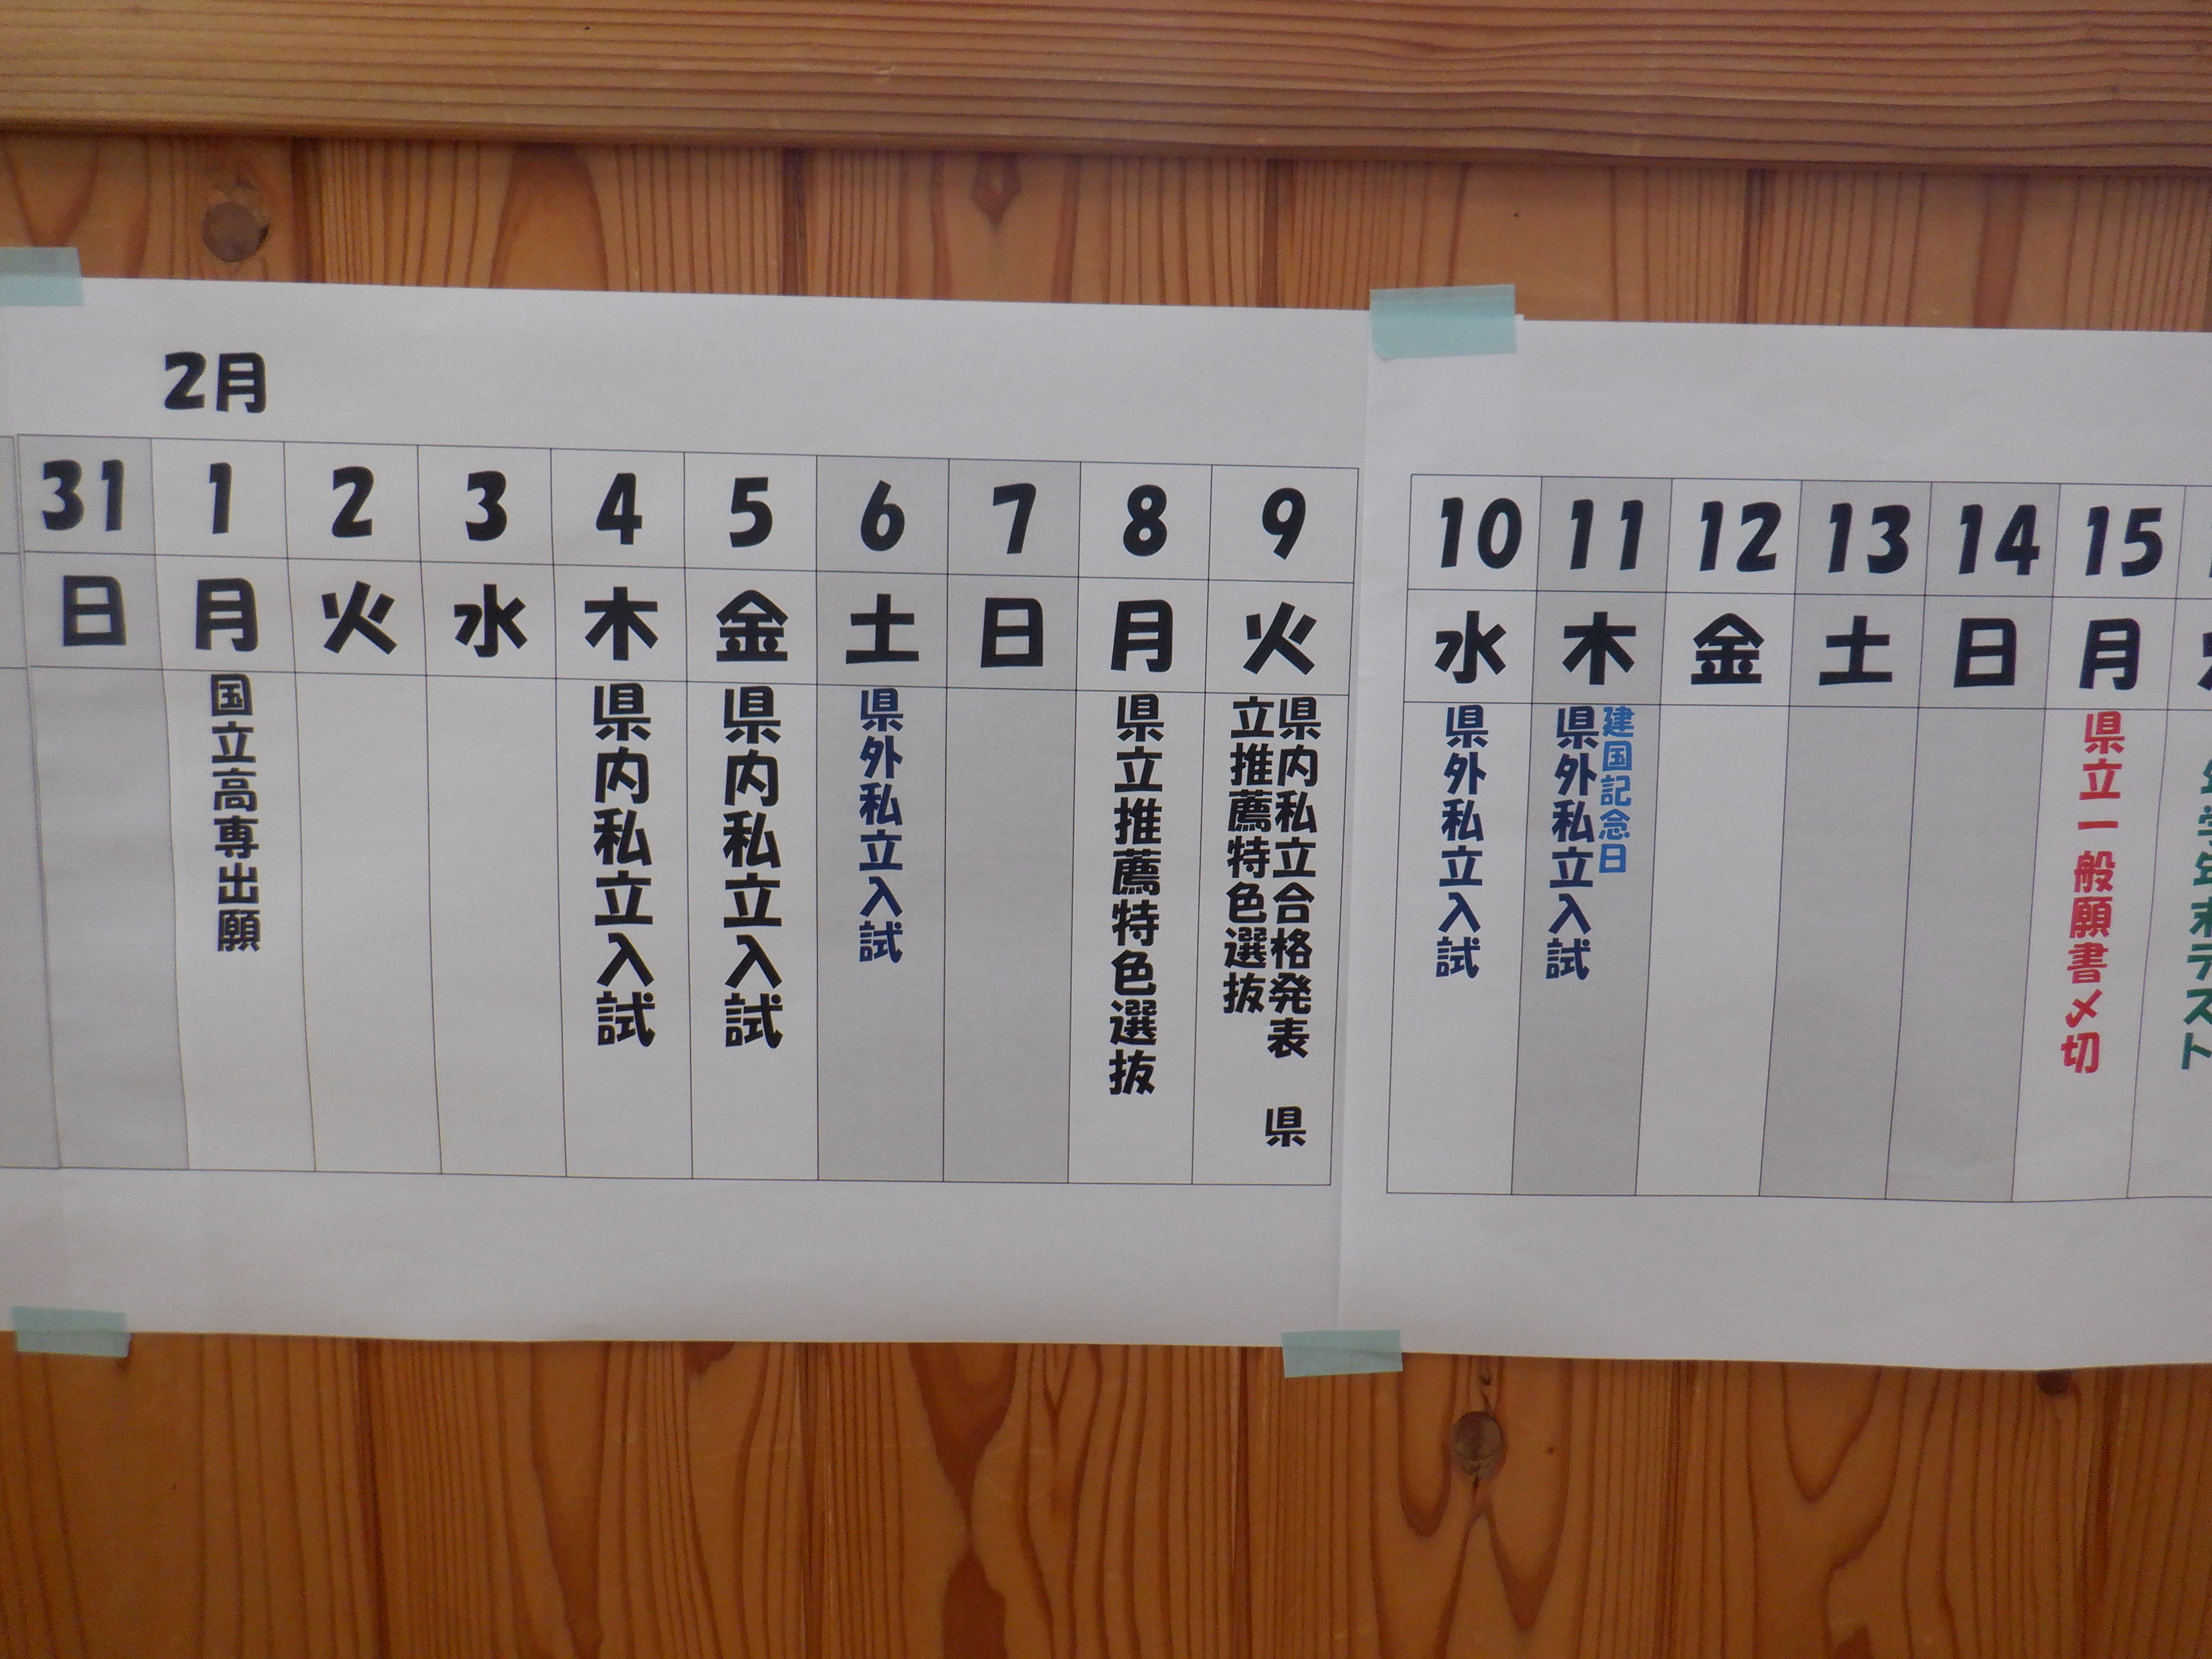 2月
31 1 2 3 4 5 6 7 8 9 10 11 12 13 14 15
日 月 火 水 木 金 土 日 月 火 水 木 金 土 日 月
国立高専出願
県内私立入試
県内私立入試
県外私立入試
県立推薦特色選抜
県内私立合格発表 県
立推薦特色選抜
県外私立入試
建国記念日
県外私立入試
県立一般願書〆切
学年末テスト